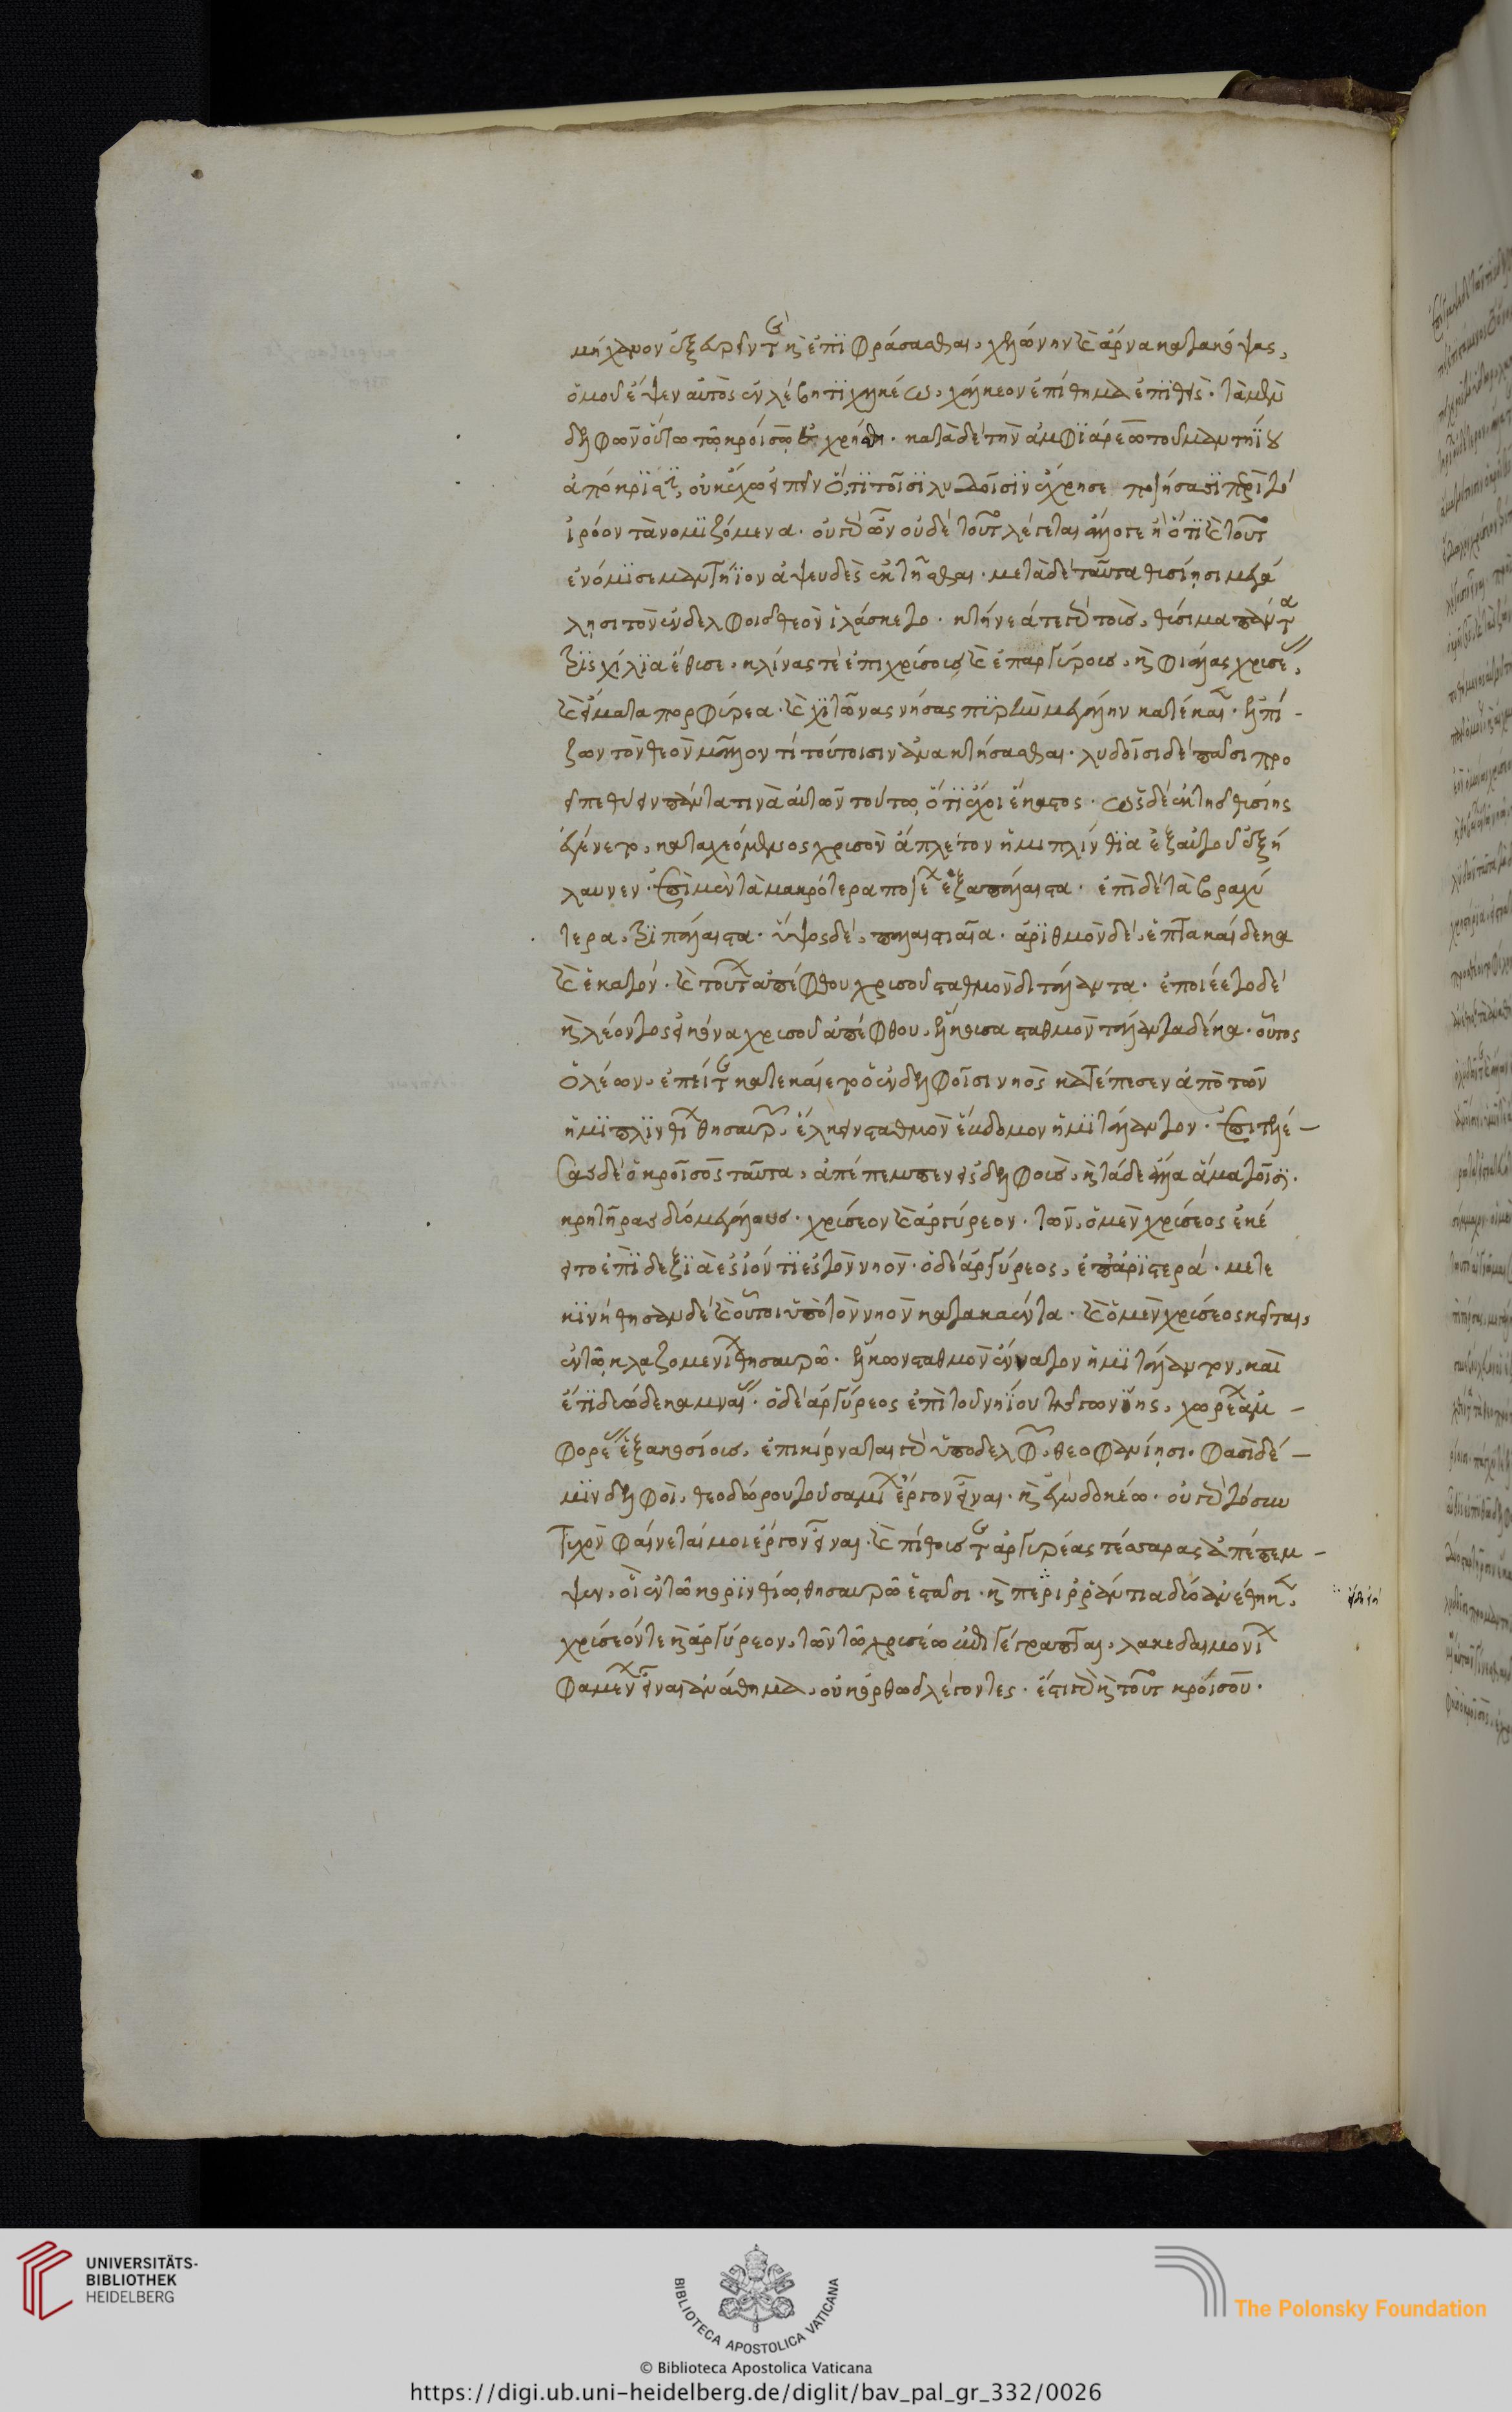 μήχανον ἐξευρεῖν τε καὶ ἐπιφράσασθαι, χελώνην καὶ ἄρνα κατακόψας,
ὁμοῦ ἕψεν αὐτὸς ἐν λέβητι χαλκέω, χάλκεον ἐπίθημα ἐπιθεὶς. τὰ μὲν
δελφῶν οὕτω τῶ κροίσω ἐχρήσθη. κατὰ δὲ τὴν ἀμφιάρεω τοῦ μαντηΐου
ἀπόκρισιν, οὐκ ἔχω εἰπεῖν ὅ,τι τοῖσι λυδοῖσιν ἔχρησε ποιήσασι περὶ τὸ
ἱρόον τὰ νομιζόμενα. οὐ γὰρ ὦν οὐδὲ τοῦτο λέγεται ἄλλο γε ἢ ὅτι καὶ τοῦτον
ἐνόμισε μαντήϊον ἀψευδὲς ἐκτῆσθαι. μετὰ δὲ ταῦτα θυσίησι μεγά
λησι τὸν ἐν δελφοῖσ θεὸν ἱλάσκετο. κτήνεά τε γὰρ τοῖσ, θύσιμα πάντα
τρισχίλια ἔθυσε, κλίνας τὲ ἐπιχρύσους καὶ ἐπαργύρους, καὶ φιάλας χρυσέας,
καὶ εἵματα πορφύρεα. καὶ χιτῶνας νήσας πυρὴν μεγάλην κατέκαιεν. ἐλπί-
ζων τὸν θεὸν μᾶλλον τί τούτοισιν ἀνακτήσασθαι. λυδοῖσι δὲ πᾶσι προ
εῖπε θύειν πάντα τινὰ αὐτῶν τούτω, ὅτι ἔχοι ἕκαστος. ὡς δὲ ἐκ τῆσ θυσίης
ἐγένετο, καταχεόμενος χρυσὸν ἄπλετον ἡμιπλίνθια ἐξ αὐτοῦ ἐξή
λαυνεν. ἐπὶ μὲν τὰ μακρότερα ποιέων ἑξαπάλαιστα. ἐπὶ δὲ τὰ βραχύ
τερα, τριπάλαιστα. ὕψος δὲ, παλαιστιαῖα. ἀριθμὸν δὲ, ἑπτακαίδεκα
καὶ ἑκατόν. καὶ τουτέων ἀπέφθου χρυσοῦ σταθμὸν διτάλαντα. ἐποιέετο δὲ
καὶ λέοντος εἰκόνα χρυσοῦ ἀπέφθου, ἕλκουσα σταθμὸν τάλαντα δέκα. οὗτος
ὁ λέων, ἐπεί τε κατεκαίετο ὁ ἐν δελφοῖσι νηὸς κατέπεσεν ἀπὸ τῶν
ἡμιπλινθίων θησαυρῶ, ἕλκει σταθμὸν ἕβδομον ἡμιτάλαντον. ἐπιτελέ-
σας δὲ ὁ κροῖσος ταῦτα, ἀπέπεμπεν εἰς δελφοὺς, καὶ τάδε ἄλλα ἅμα τοῖσι.
κρητῆρας δύο μεγάλους. χρύσεον καὶ ἀργύρεον. τῶν, ὁ μὲν χρύσεος ἐκέ
ετο ἐπὶ δεξιὰ ἐσιόντι ἐς τὸν νηὸν. ὁ δὲ ἀργύρεος, ἐπ' ἀριστερά. μετε
κινήθησαν δὲ καὶ οὗτοι ὑπὸ τὸν νηὸν κατακαέντα. καὶ ὁ μὲν χρύσεος κεῖται,
ἐν τῶ κλαζομενίων θησαυρῶ. ἕλκων σταθμὸν ἔννατον ἡμιτάλαντον, καὶ
ἔτι δυώδεκα μνᾶς. ὁ δὲ ἀργύρεος ἐπὶ τοῦ νηΐου τῆς γωνίης, χωρέων ἀμ-
φορέας ἑξακοσίους, ἐπικίρναται γὰρ ὑπὸ δελφῶν, θεοφανίησι. φασὶ δέ-
μιν δελφοὶ, θεοδώρου τοῦ σαμίων ἔργον εἶναι. καὶ ἐγὼ δοκέω. οὐ γὰρ τὸ συν
τυχὸν φαίνεταί μοι ἔργον εἶναι. καὶ πίθους τε ἀργυρέας τέσσαρας ἀπέπεμ-
ψεν, οἳ ἐν τῶ κορινθίω θησαυρῶ ἑστᾶσι. καὶ περιρραντια δύο ἀνέθηκεν,
χρύσεόν τε καὶ ἀργύρεον, τῶν τῶ χρυσέω ἐπιγέγραπται, λακεδαιμονίων
φαμένων εἶναι ἀνάθημα, οὐκ ὀρθῶσ λέγοντες. ἔστι γὰρ καὶ τοῦτο κροίσου.
UNIVERSITÄTS-
BIBLIOTHEK
HEIDELBERG
BIBLIOTECA APOSTOLICA VATICANA
The Polonsky Foundation
© Biblioteca Apostolica Vaticana
https://digi.ub.uni-heidelberg.de/diglit/bav_pal_gr_332/0026